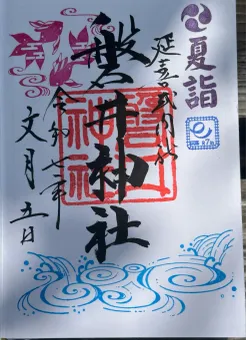 夏詣
延喜式内社
磐井神社
令和七年
文月五日